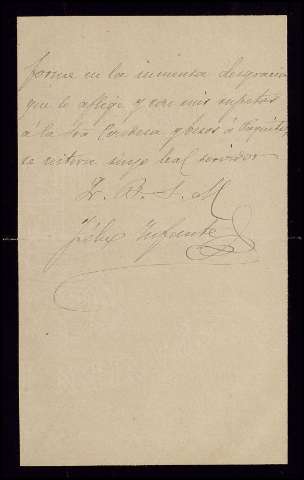 forme en la inmensa desgracia
que le aflige y con mis respetos
á la Sra Condesa, y besos á Pepita,
se reitera suyo leal servidor
Q. B. S. M
Félix Infante